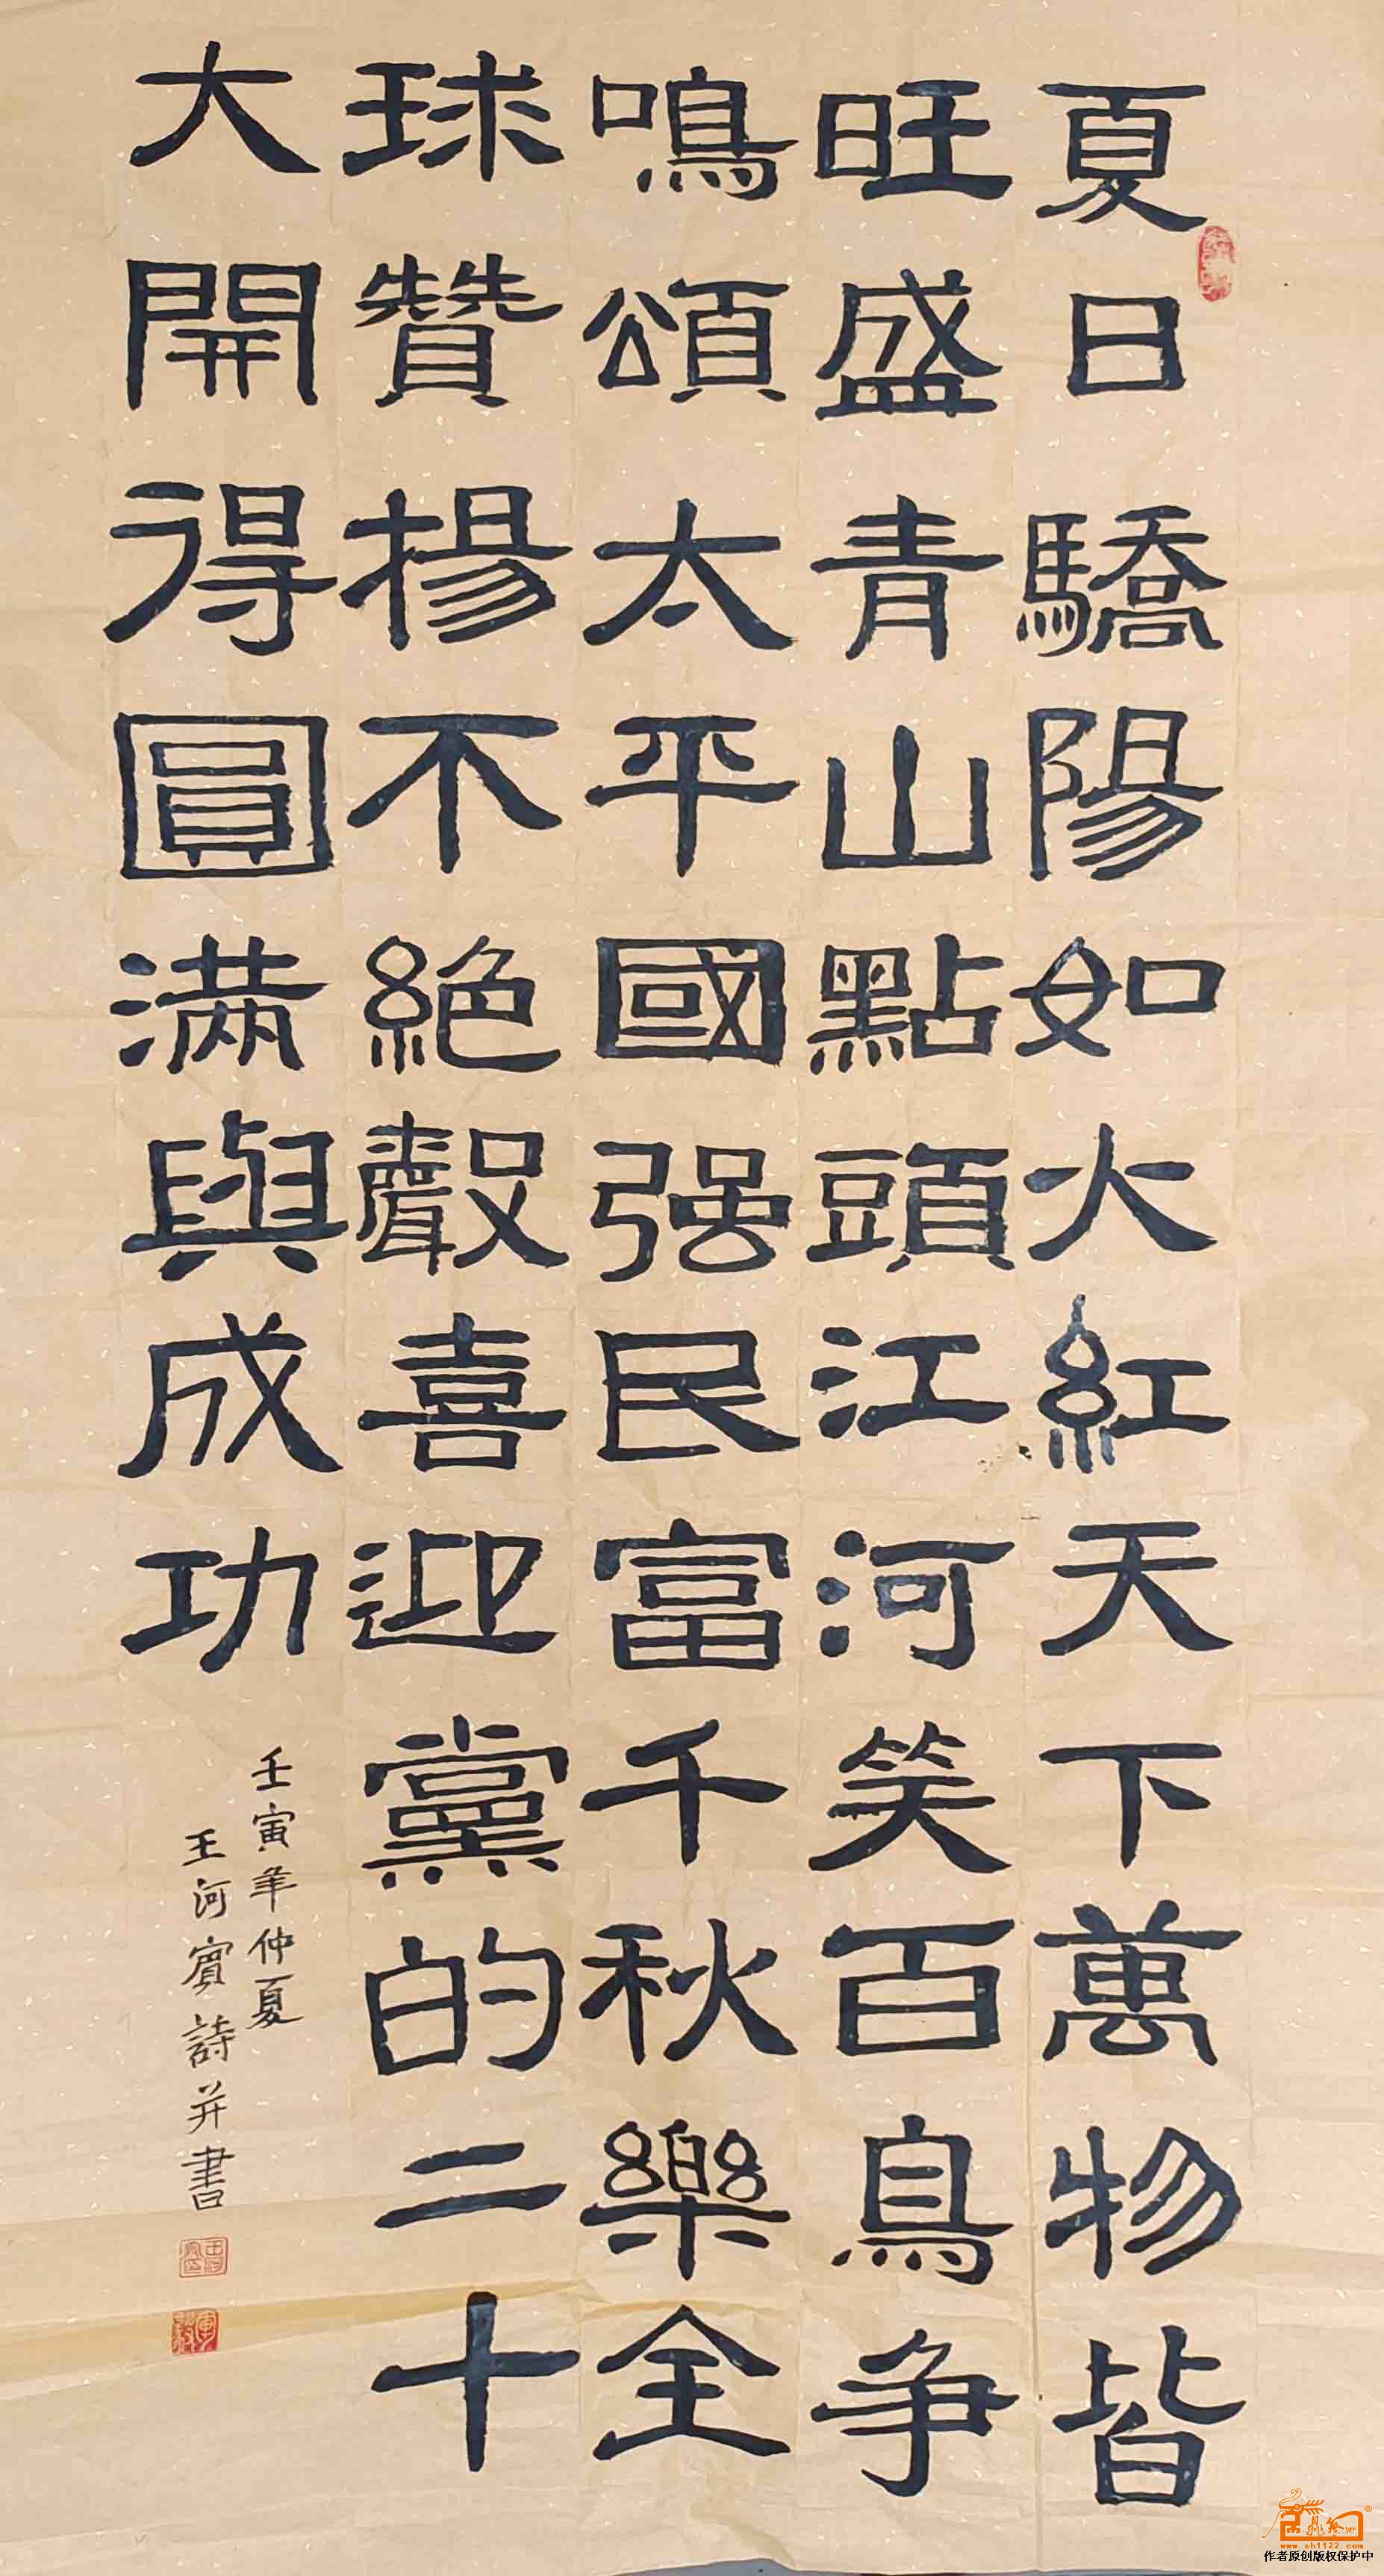 夏日驕陽如火紅天下萬物皆
旺盛青山點頭江河笑百鳥争
鳴頌太平國强民富千秋樂全
球贊揚不絕聲喜迎黨的二十
大開得圓滿與成功
壬寅年仲夏
王河賓詩并書
www.sh1122.com
作者原创版权保护中